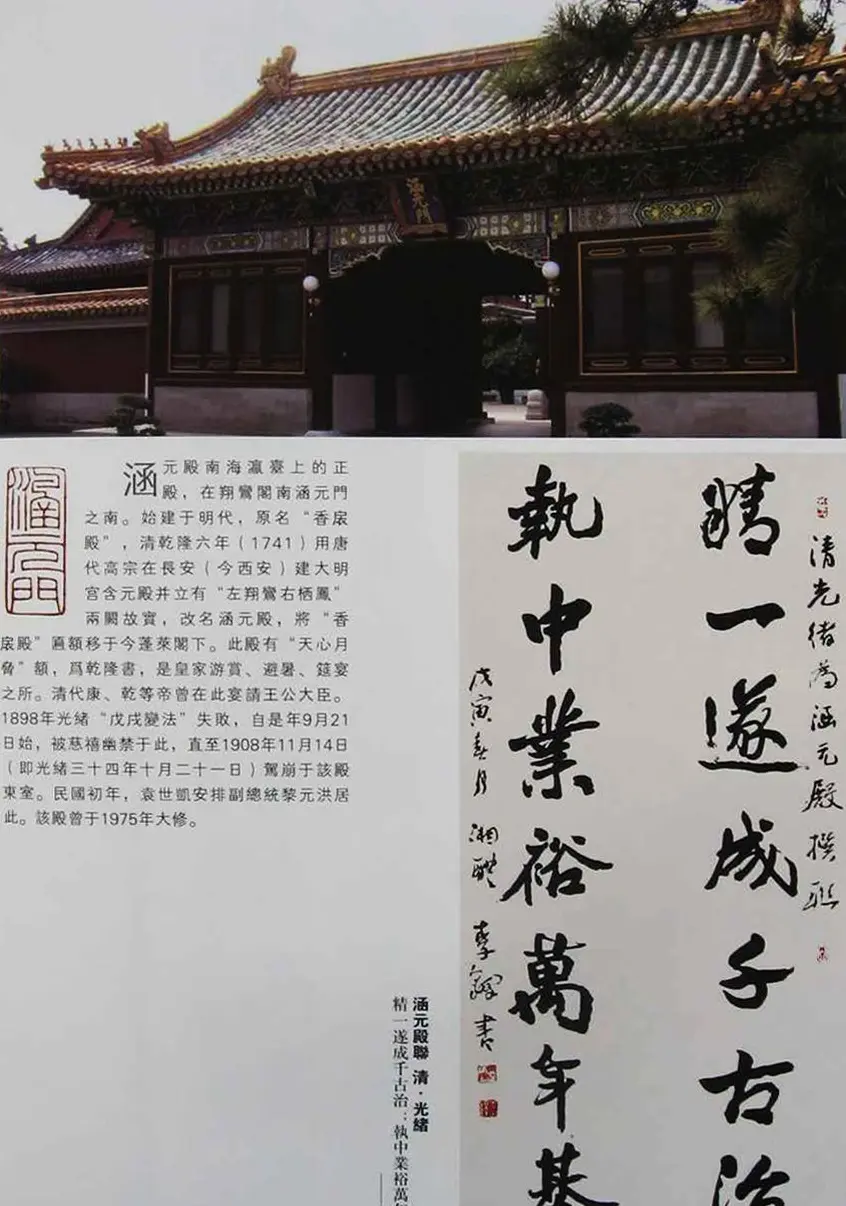 涵元門
涵元門
涵元殿南海瀛臺上的正
殿，在翔鸞閣南涵元門
之南。始建于明代，原名“香扆
殿”，清乾隆六年（1741）用唐
代高宗在長安（今西安）建大明
宫含元殿并立有“左翔鸞右栖鳳”
兩闕故實，改名涵元殿，將“香
扆殿”匾額移于今蓬萊閣下。此殿有“天心月
脅”額，爲乾隆書，是皇家游賞、避暑、筵宴
之所。清代康、乾等帝曾在此宴請王公大臣。
1898年光緒“戊戌變法”失敗，自是年9月21
日始，被慈禧幽禁于此，直至1908年11月14日
（即光緒三十四年十月二十一日）駕崩于該殿
東室。民國初年，袁世凱安排副總統黎元洪居
此。該殿曾于1975年大修。
清光緒為涵元殿撰聯
精一遂成千古治
執中業裕萬年基
戊寅春月 湘醴 李鐸書
涵元殿聯 清·光緒
精一遂成千古治；執中業裕萬年